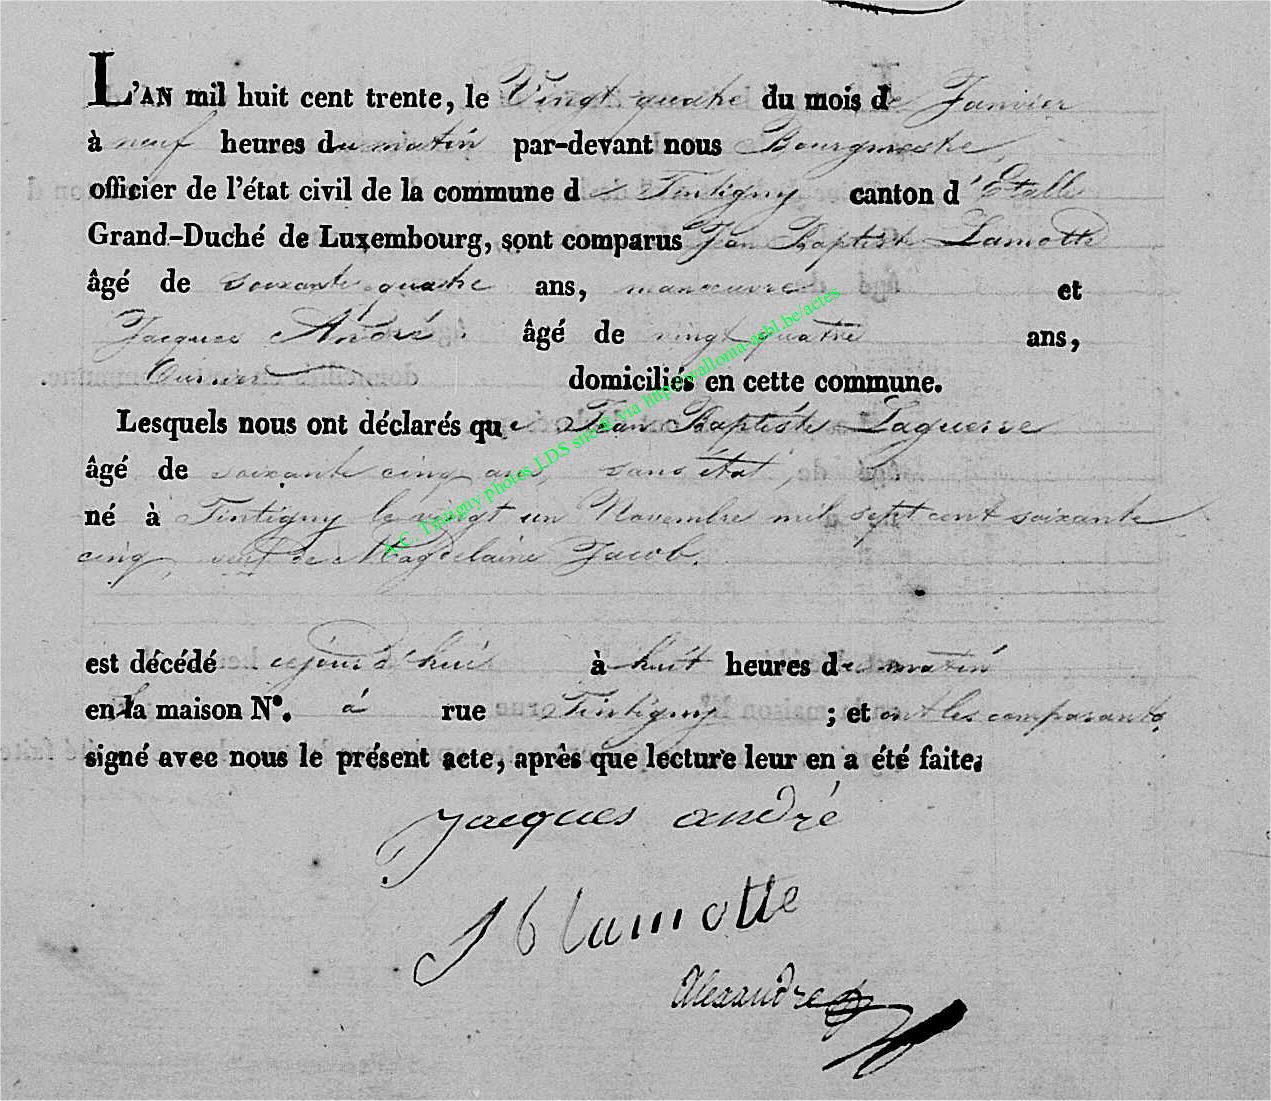 L'AN mil huit cent trente, le Vingt quatre du mois de Janvier
à neuf heures du matin par-devant nous Bourgmestre,
officier de l'état civil de la commune de Tintigny canton d'Etalle
Grand-Duché de Luxembourg, sont comparus Jean Baptiste Lamotte
âgé de soixante quatre ans, manœuvre et
Jacques André âgé de vingt quatre ans,
domiciliés en cette commune.
Lesquels nous ont déclarés que Jean Baptiste Laguerre
âgé de soixante cinq ans, sans état,
né à Tintigny le vingt un Novembre mil sept cent soixante
cinq, veuf de Magdelaine Jacob.
est décédé cejourd'hui à huit heures du matin
en la maison N°. à rue Tintigny ; et ont les comparants
signé avec nous le présent acte, après que lecture leur en a été faite.
Jacques andré
J b lamotte
Alexandre
A.C. Tintigny photos LDS sucg via http://wallonia-asbl.be/actes